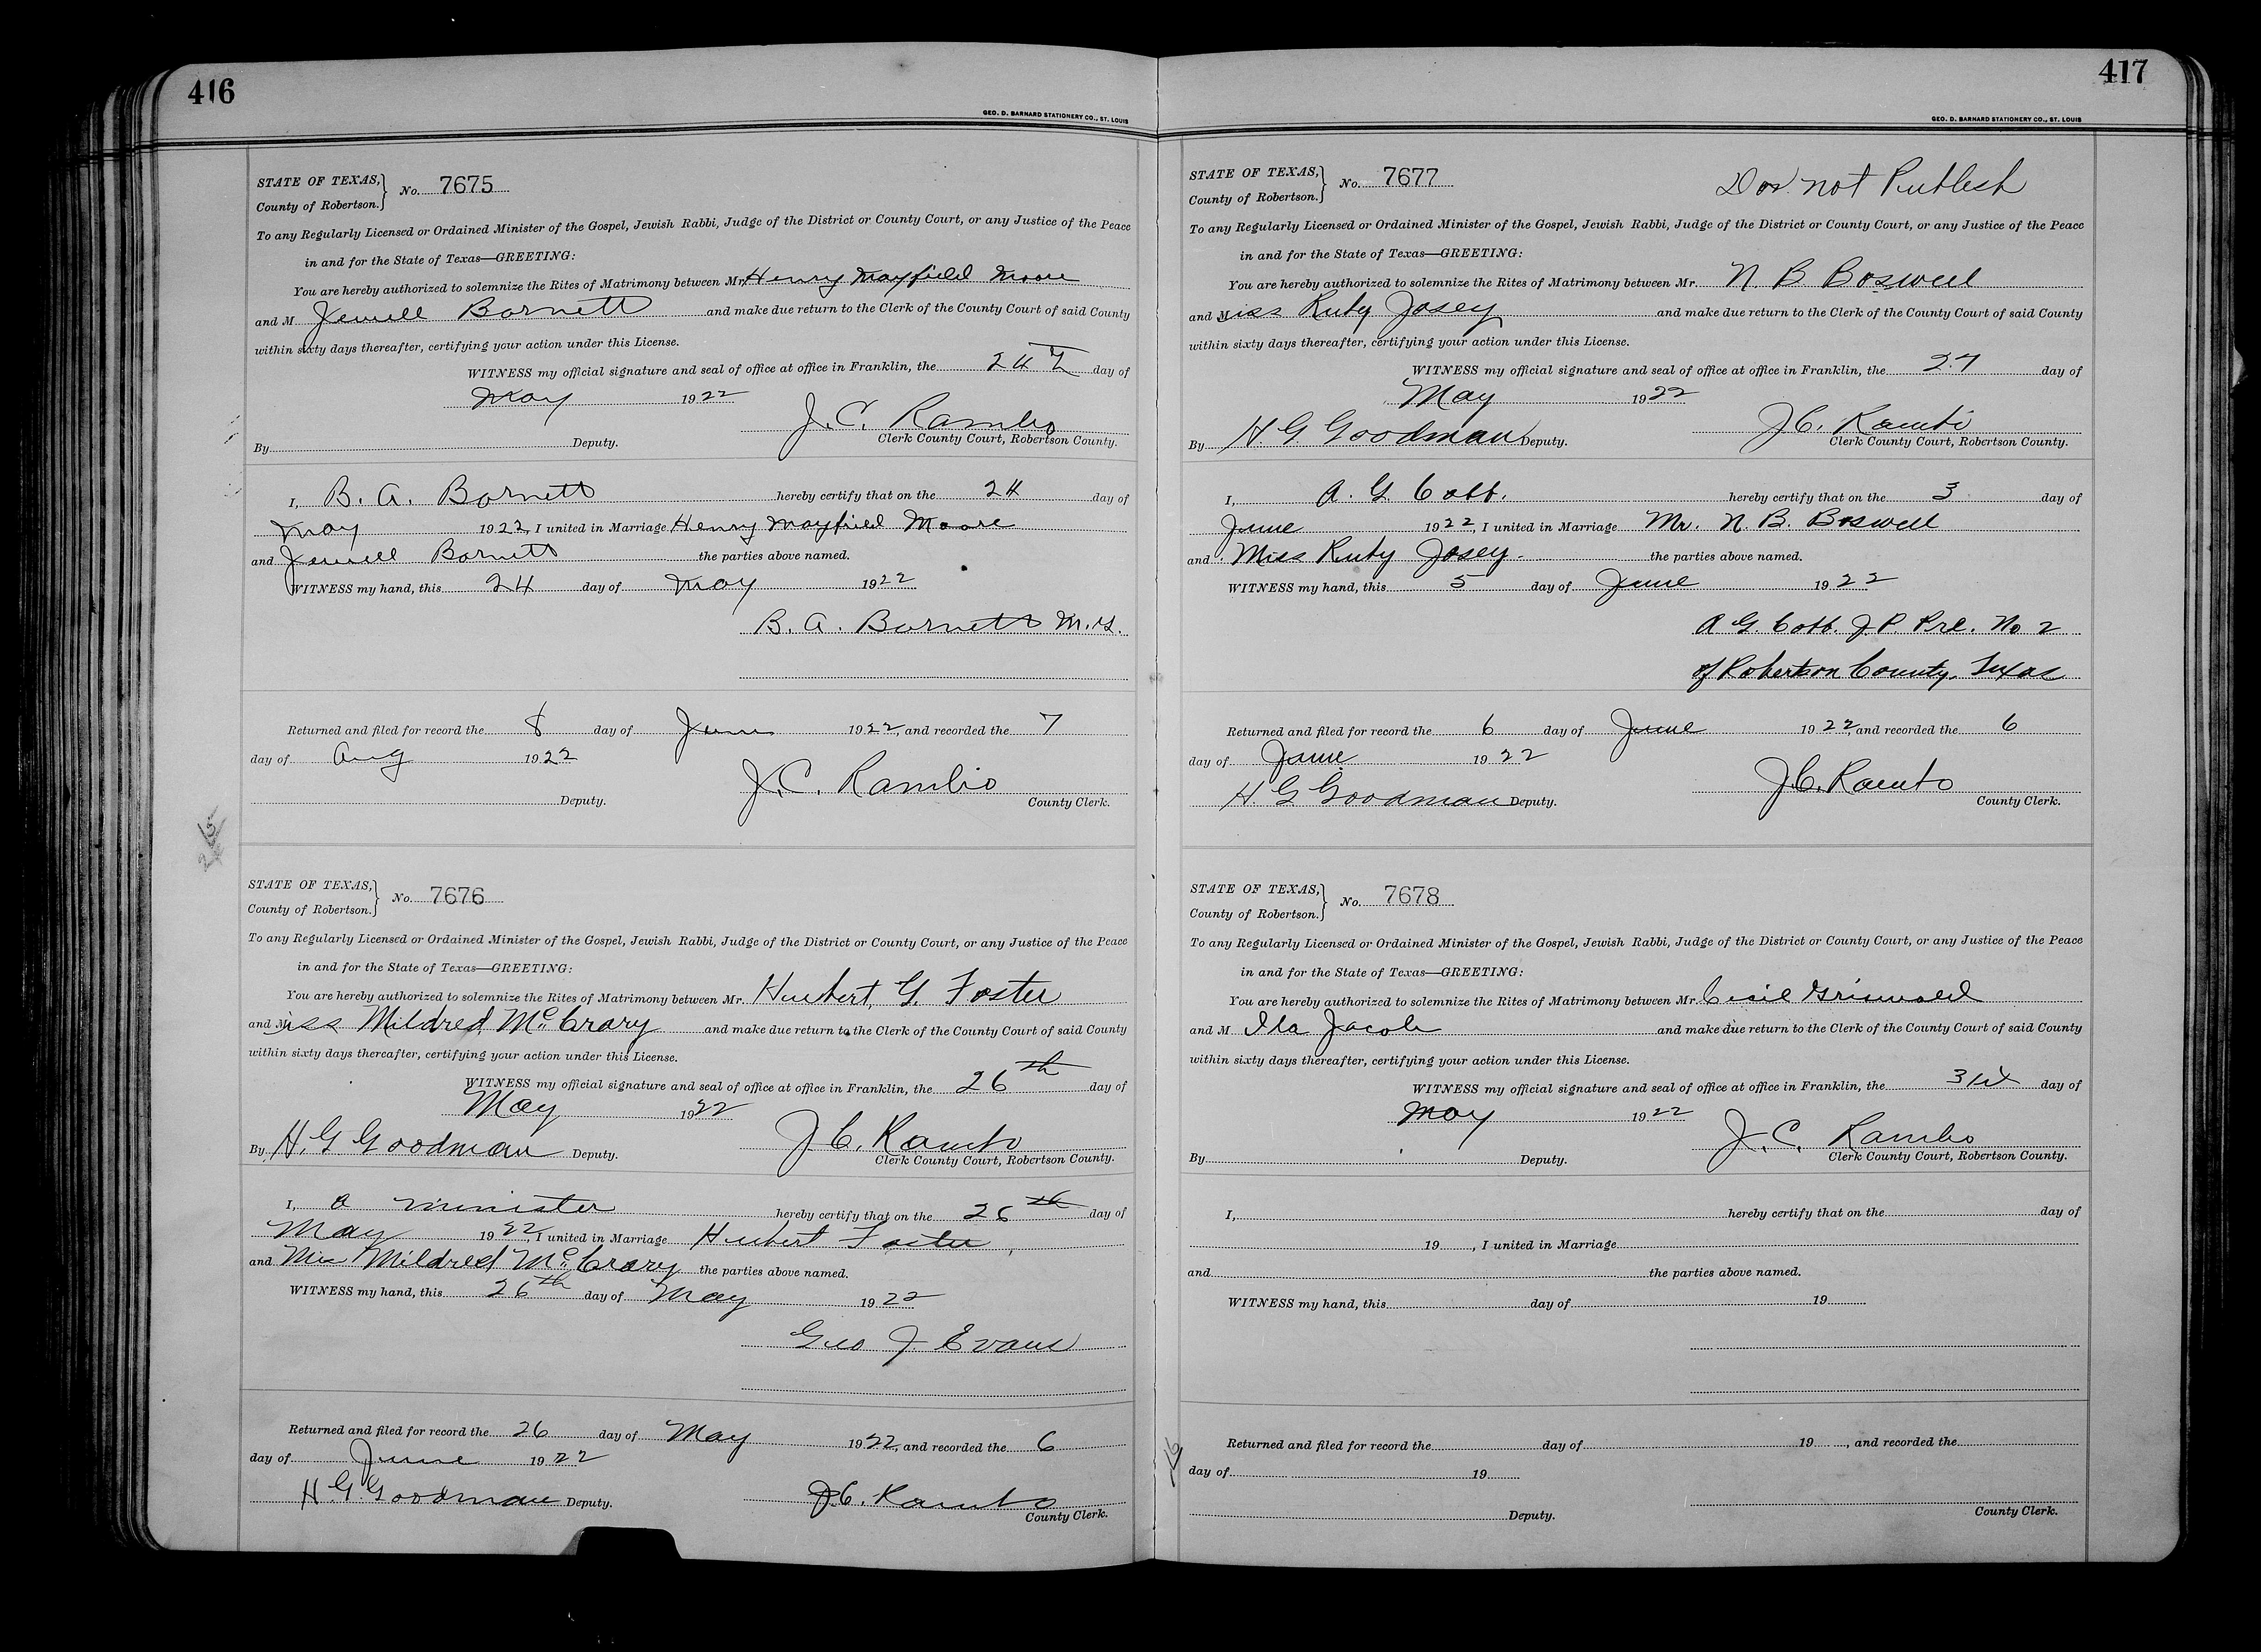 416
GEO. D. BARNARD STATIONERY CO., ST. LOUIS
STATE OF TEXAS,
County of Robertson.
No. 7675
To any Regularly Licensed or Ordained Minister of the Gospel, Jewish Rabbi, Judge of the District or County Court, or any Justice of the Peace
in and for the State of Texas—GREETING:
You are hereby authorized to solemnize the Rites of Matrimony between Mr. Henry Mayfield Moore
and M Jewell Barnett and make due return to the Clerk of the County Court of said County
within sixty days thereafter, certifying your action under this License.
WITNESS my official signature and seal of office at office in Franklin, the 24 day of
May 1922
J. C. Rambo
By Deputy. Clerk County Court, Robertson County.
I, B. A. Barnett hereby certify that on the 24 day of
May 1922, I united in Marriage Henry Mayfield Moore
and Jewell Barnett the parties above named.
WITNESS my hand, this 24 day of May 1922
B. A. Barnett M.G.
Returned and filed for record the 8 day of June 1922, and recorded the 7
day of Aug 1922
J. C. Rambo
Deputy. County Clerk.
STATE OF TEXAS,
County of Robertson.
No. 7676
To any Regularly Licensed or Ordained Minister of the Gospel, Jewish Rabbi, Judge of the District or County Court, or any Justice of the Peace
in and for the State of Texas—GREETING:
You are hereby authorized to solemnize the Rites of Matrimony between Mr. Hubert G. Foster
and Miss Mildred McCrary and make due return to the Clerk of the County Court of said County
within sixty days thereafter, certifying your action under this License.
WITNESS my official signature and seal of office at office in Franklin, the 26th day of
May 1922
By H. G Goodman Deputy. J. C. Rambo
Clerk County Court, Robertson County.
I, a minister hereby certify that on the 26th day of
May 1922, I united in Marriage Hubert Foster,
and Miss Mildred McCrary the parties above named.
WITNESS my hand, this 26th day of May 1922
Geo J Evans
Returned and filed for record the 26 day of May 1922, and recorded the 6
day of June 1922
H. G. Goodman Deputy. J. C. Rambo
County Clerk.
417
GEO. D. BARNARD STATIONERY CO., ST. LOUIS
STATE OF TEXAS,
County of Robertson.
No. 7677
Do not Publish
To any Regularly Licensed or Ordained Minister of the Gospel, Jewish Rabbi, Judge of the District or County Court, or any Justice of the Peace
in and for the State of Texas—GREETING:
You are hereby authorized to solemnize the Rites of Matrimony between Mr. N. B Boswell
and Miss Ruby Josey and make due return to the Clerk of the County Court of said County
within sixty days thereafter, certifying your action under this License.
WITNESS my official signature and seal of office at office in Franklin, the 27 day of
May 1922
By H. G Goodman Deputy. J. C. Rambo
Clerk County Court, Robertson County.
I, A. G. Cobb. hereby certify that on the 3 day of
June 1922, I united in Marriage Mr. N B. Boswell
and Miss Ruby Josey. the parties above named.
WITNESS my hand, this 5 day of June 1922
A G. Cobb. J. P. Pre. No 2
of Robertson County, Texas
Returned and filed for record the 6 day of June 1922, and recorded the 6
day of June 1922
H. G Goodman Deputy. J. C. Rambo
County Clerk.
STATE OF TEXAS,
County of Robertson.
No. 7678
To any Regularly Licensed or Ordained Minister of the Gospel, Jewish Rabbi, Judge of the District or County Court, or any Justice of the Peace
in and for the State of Texas—GREETING:
You are hereby authorized to solemnize the Rites of Matrimony between Mr. Cecil Griswold
and M Ila Jacob and make due return to the Clerk of the County Court of said County
within sixty days thereafter, certifying your action under this License.
WITNESS my official signature and seal of office at office in Franklin, the 31st day of
May 1922
J. C. Rambo
By Deputy. Clerk County Court, Robertson County.
I, hereby certify that on the day of
19, I united in Marriage
and the parties above named.
WITNESS my hand, this day of 19
Returned and filed for record the day of 19, and recorded the
day of 19
Deputy. County Clerk.